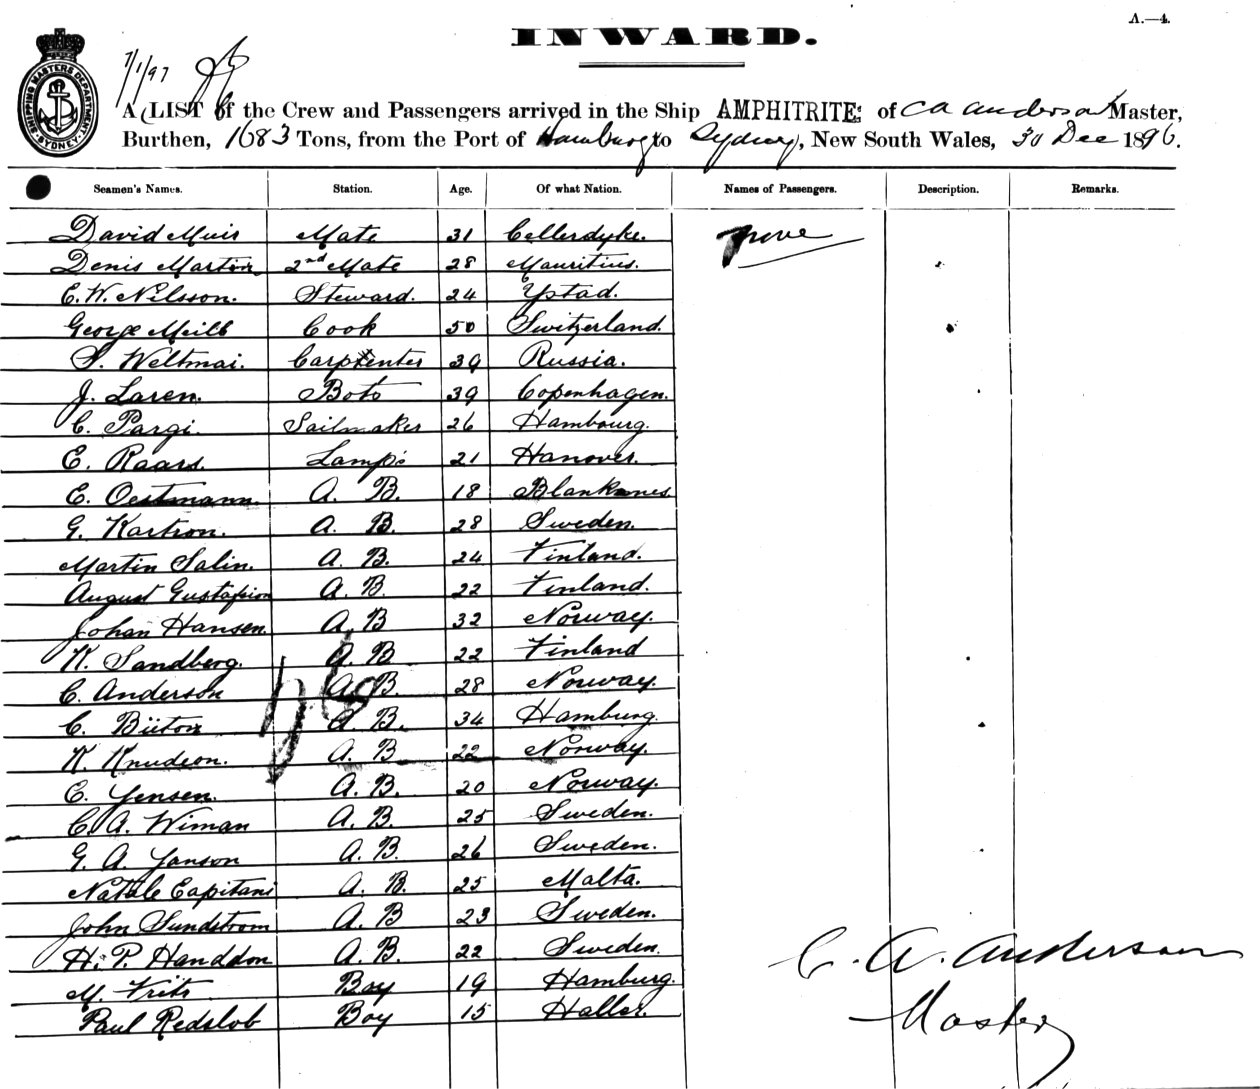 A.—4.
INWARD.
SHIPPING MASTERS DEPARTMENT SYDNEY
7/1/97
A LIST of the Crew and Passengers arrived in the Ship AMPHITRITE of C A Anderson Master,
Burthen, 1683 Tons, from the Port of Hamburg to Sydney, New South Wales, 30 Dec 1896.
Seamen's Names. Station. Age. Of what Nation. Names of Passengers. Description. Remarks.
David Muir Mate 31 Cellerdyke. None
Denis Martin 2nd Mate 28 Mauritius.
E. W. Nilsson. Steward. 24 Ystad.
George Meili Cook 50 Switzerland.
S. Weltmai. Carpenter 39 Russia.
J. Laren. Bots 39 Copenhagen.
C. Pargi. Sailmaker 26 Hambourg.
E. Raars. Lamps 21 Hanover.
E. Oestmann. A. B. 18 Blanknes
G. Kartron. A. B. 28 Sweden.
Martin Salin. A. B. 24 Finland.
August Gustafsson A. B. 22 Finland.
Johan Hansen. A. B 32 Norway.
K. Sandberg. A. B. 22 Finland
C. Anderson A. B. 28 Norway.
C. Büton A. B. 34 Hamburg.
K. Knudson. A. B. 22 Norway.
C. Jensen. A. B. 20 Norway.
C. A. Wiman A. B. 25 Sweden.
G. A. Janson A. B. 26 Sweden.
Natale Capitani A. B. 25 Malta.
John Sundstrom A. B 23 Sweden.
H. P. Handdon A. B. 22 Sweden.
M. Frits Boy 19 Hamburg.
Paul Redslob Boy 15 Haller.
C. A. Anderson
Master